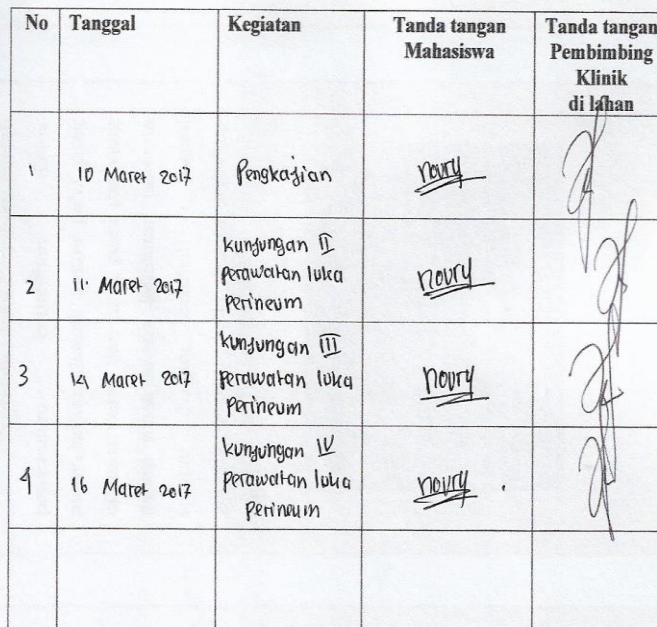 No Tanggal Kegiatan Tanda tangan Mahasiswa Tanda tangan Pembimbing Klinik di lahan
1 10 Maret 2017 Pengkajian noury
2 11 Maret 2017 kunjungan II perawatan luka perineum noury
3 14 Maret 2017 kunjungan III perawatan luka perineum noury
4 16 Maret 2017 kunjungan IV perawatan luka perineum noury